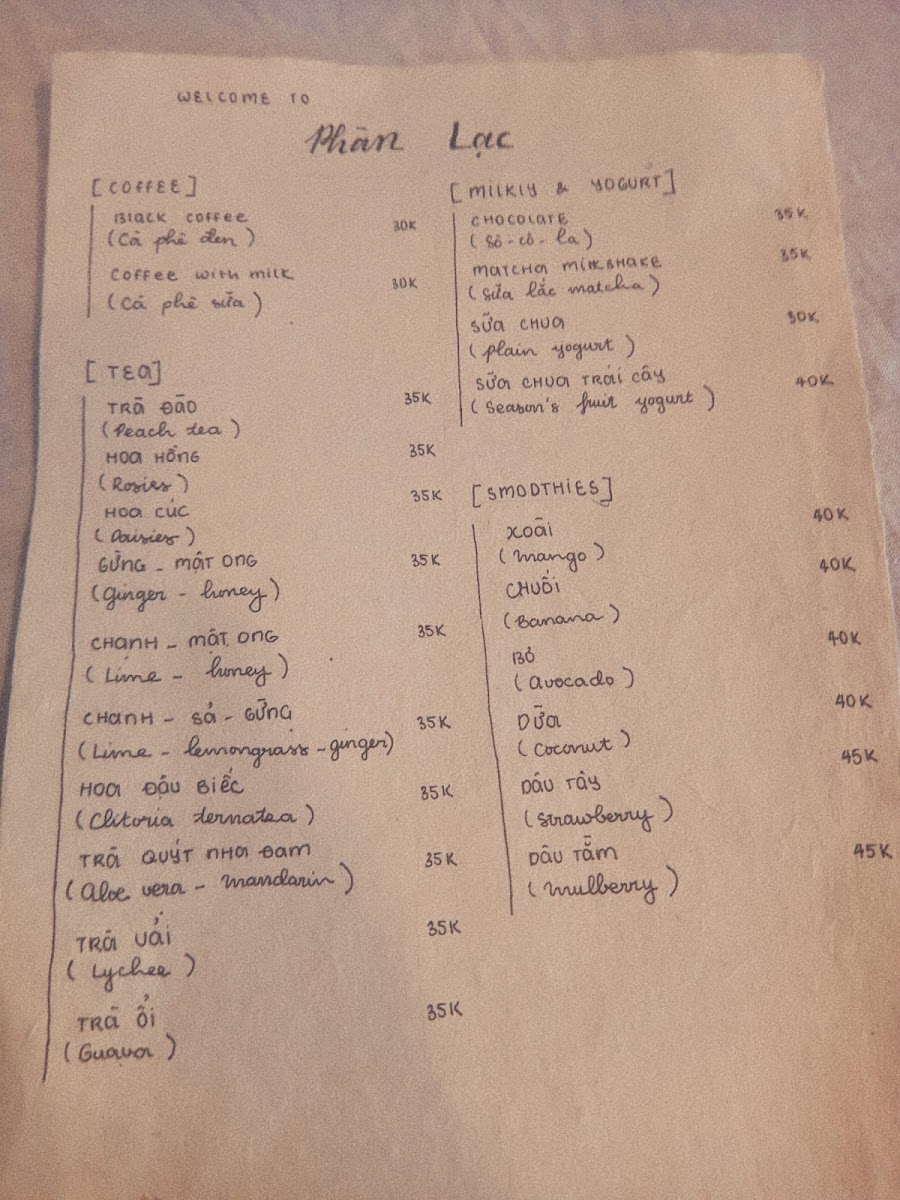 WELCOME TO
Phàn Lạc
[COFFEE]
Black coffee 30K
(Cà phê đen)
Coffee with milk 30K
(Cà phê sữa)
[TEA]
TRÀ ĐÀO 35K
(Peach tea)
HOA HỒNG 35K
(Rosies)
HOA CÚC 35K
(Daisies)
GỪNG - MẬT ONG 35K
(Ginger - honey)
CHANH - MẬT ONG 35K
(Lime - honey)
CHANH - SẢ - GỪNG 35K
(Lime - lemongrass - ginger)
HOA ĐẬU BIẾC 35K
(Clitoria ternatea)
TRÀ QUÝT NHA ĐAM 35K
(Aloe vera - mandarin)
TRÀ VẢI 35K
(Lychee)
TRÀ ỔI 35K
(Guava)
[MILKIY & YOGURT]
CHOCOLATE 35K
(Sô-cô-la)
MATCHA MILKSHAKE 35K
(Sữa lắc matcha)
SỮA CHUA 30K
(plain yogurt)
SỮA CHUA TRÁI CÂY 40K
(Season's fruit yogurt)
[SMOOTHIES]
XOÀI 40K
(mango)
CHUỐI 40K
(Banana)
BƠ 40K
(avocado)
DỪA 40K
(Coconut)
DÂU TÂY 45K
(strawberry)
DÂU TẰM 45K
(mulberry)